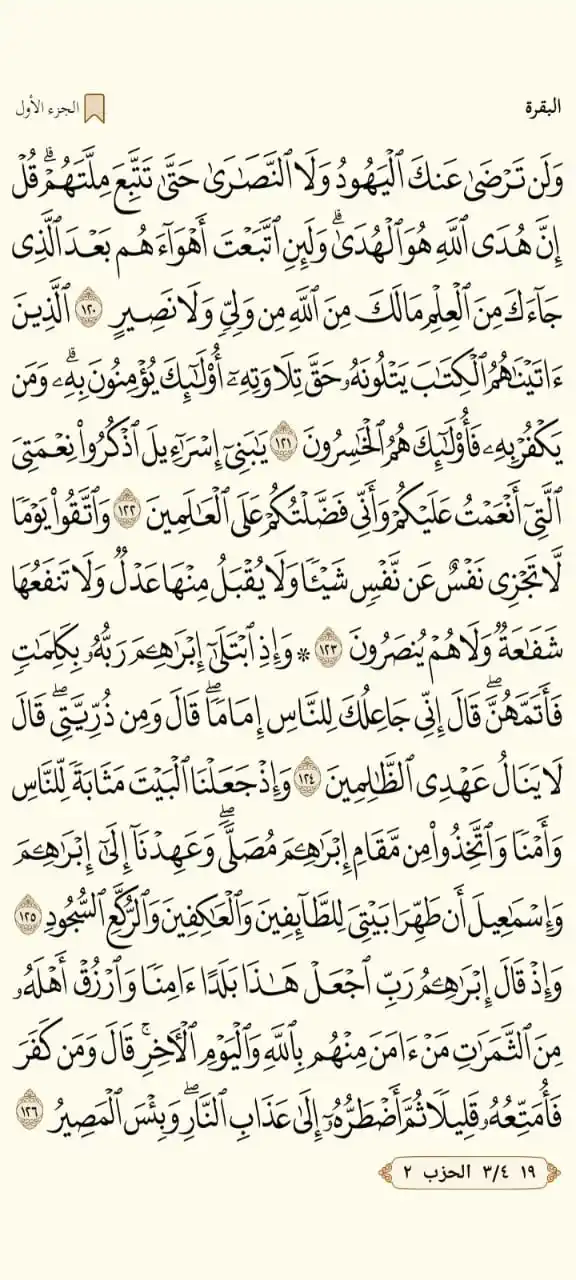 البقرة
الجزء الأول
وَلَن تَرۡضَىٰ عَنكَ ٱلۡيَهُودُ وَلَا ٱلنَّصَٰرَىٰ حَتَّىٰ تَتَّبِعَ مِلَّتَهُمۡۗ قُلۡ
إِنَّ هُدَى ٱللَّهِ هُوَ ٱلۡهُدَىٰۗ وَلَئِنِ ٱتَّبَعۡتَ أَهۡوَآءَهُم بَعۡدَ ٱلَّذِي
جَآءَكَ مِنَ ٱلۡعِلۡمِ مَا لَكَ مِنَ ٱللَّهِ مِن وَلِيّٖ وَلَا نَصِيرٍ ١٢٠ ٱلَّذِينَ
ءَاتَيۡنَٰهُمُ ٱلۡكِتَٰبَ يَتۡلُونَهُۥ حَقَّ تِلَاوَتِهِۦٓ أُوْلَٰٓئِكَ يُؤۡمِنُونَ بِهِۦۗ وَمَن
يَكۡفُرۡ بِهِۦ فَأُوْلَٰٓئِكَ هُمُ ٱلۡخَٰسِرُونَ ١٢١ يَٰبَنِيٓ إِسۡرَٰٓءِيلَ ٱذۡكُرُواْ نِعۡمَتِيَ
ٱلَّتِيٓ أَنۡعَمۡتُ عَلَيۡكُمۡ وَأَنِّي فَضَّلۡتُكُمۡ عَلَى ٱلۡعَٰلَمِينَ ١٢٢ وَٱتَّقُواْ يَوۡمٗا
لَّا تَجۡزِي نَفۡسٌ عَن نَّفۡسٖ شَيۡـٔٗا وَلَا يُقۡبَلُ مِنۡهَا عَدۡلٞ وَلَا تَنفَعُهَا
شَفَٰعَةٞ وَلَا هُمۡ يُنصَرُونَ ١٢٣ * وَإِذِ ٱبۡتَلَىٰٓ إِبۡرَٰهِـۧمَ رَبُّهُۥ بِكَلِمَٰتٖ
فَأَتَمَّهُنَّۖ قَالَ إِنِّي جَاعِلُكَ لِلنَّاسِ إِمَامٗاۖ قَالَ وَمِن ذُرِّيَّتِيۖ قَالَ
لَا يَنَالُ عَهۡدِي ٱلظَّٰلِمِينَ ١٢٤ وَإِذۡ جَعَلۡنَا ٱلۡبَيۡتَ مَثَابَةٗ لِّلنَّاسِ
وَأَمۡنٗا وَٱتَّخِذُواْ مِن مَّقَامِ إِبۡرَٰهِـۧمَ مُصَلّٗىۖ وَعَهِدۡنَآ إِلَىٰٓ إِبۡرَٰهِـۧمَ
وَإِسۡمَٰعِيلَ أَن طَهِّرَا بَيۡتِيَ لِلطَّآئِفِينَ وَٱلۡعَٰكِفِينَ وَٱلرُّكَّعِ ٱلسُّجُودِ ١٢٥
وَإِذۡ قَالَ إِبۡرَٰهِـۧمُ رَبِّ ٱجۡعَلۡ هَٰذَا بَلَدًا ءَامِنٗا وَٱرۡزُقۡ أَهۡلَهُۥ
مِنَ ٱلثَّمَرَٰتِ مَنۡ ءَامَنَ مِنۡهُم بِٱللَّهِ وَٱلۡيَوۡمِ ٱلۡأٓخِرِۚ قَالَ وَمَن كَفَرَ
فَأُمَتِّعُهُۥ قَلِيلٗا ثُمَّ أَضۡطَرُّهُۥٓ إِلَىٰ عَذَابِ ٱلنَّارِۖ وَبِئۡسَ ٱلۡمَصِيرُ ١٢٦
١٩ ٣/٤ الحزب ٢